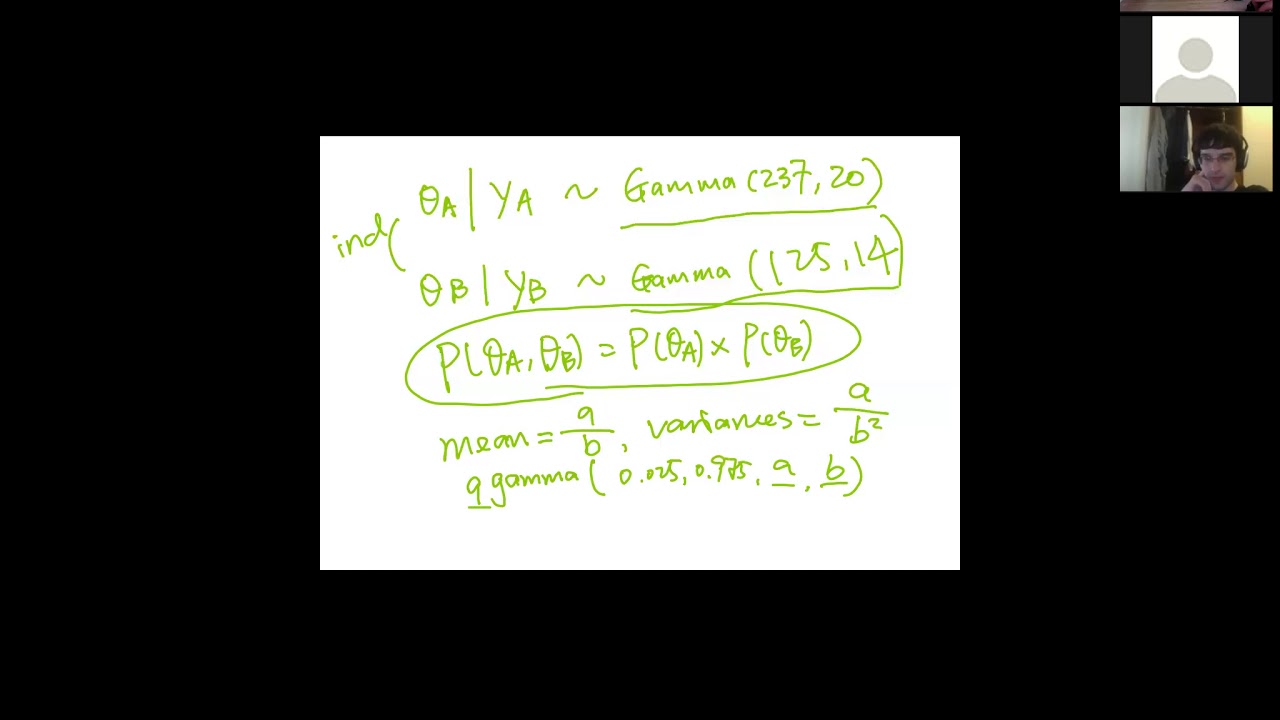 θA | YA ~ Gamma (237, 20)
ind(
θB | YB ~ Gamma (125, 14)
P(θA, θB) = P(θA) × P(θB)
mean = a/b, variances = a/b²
qgamma ( 0.025, 0.975, a, b)